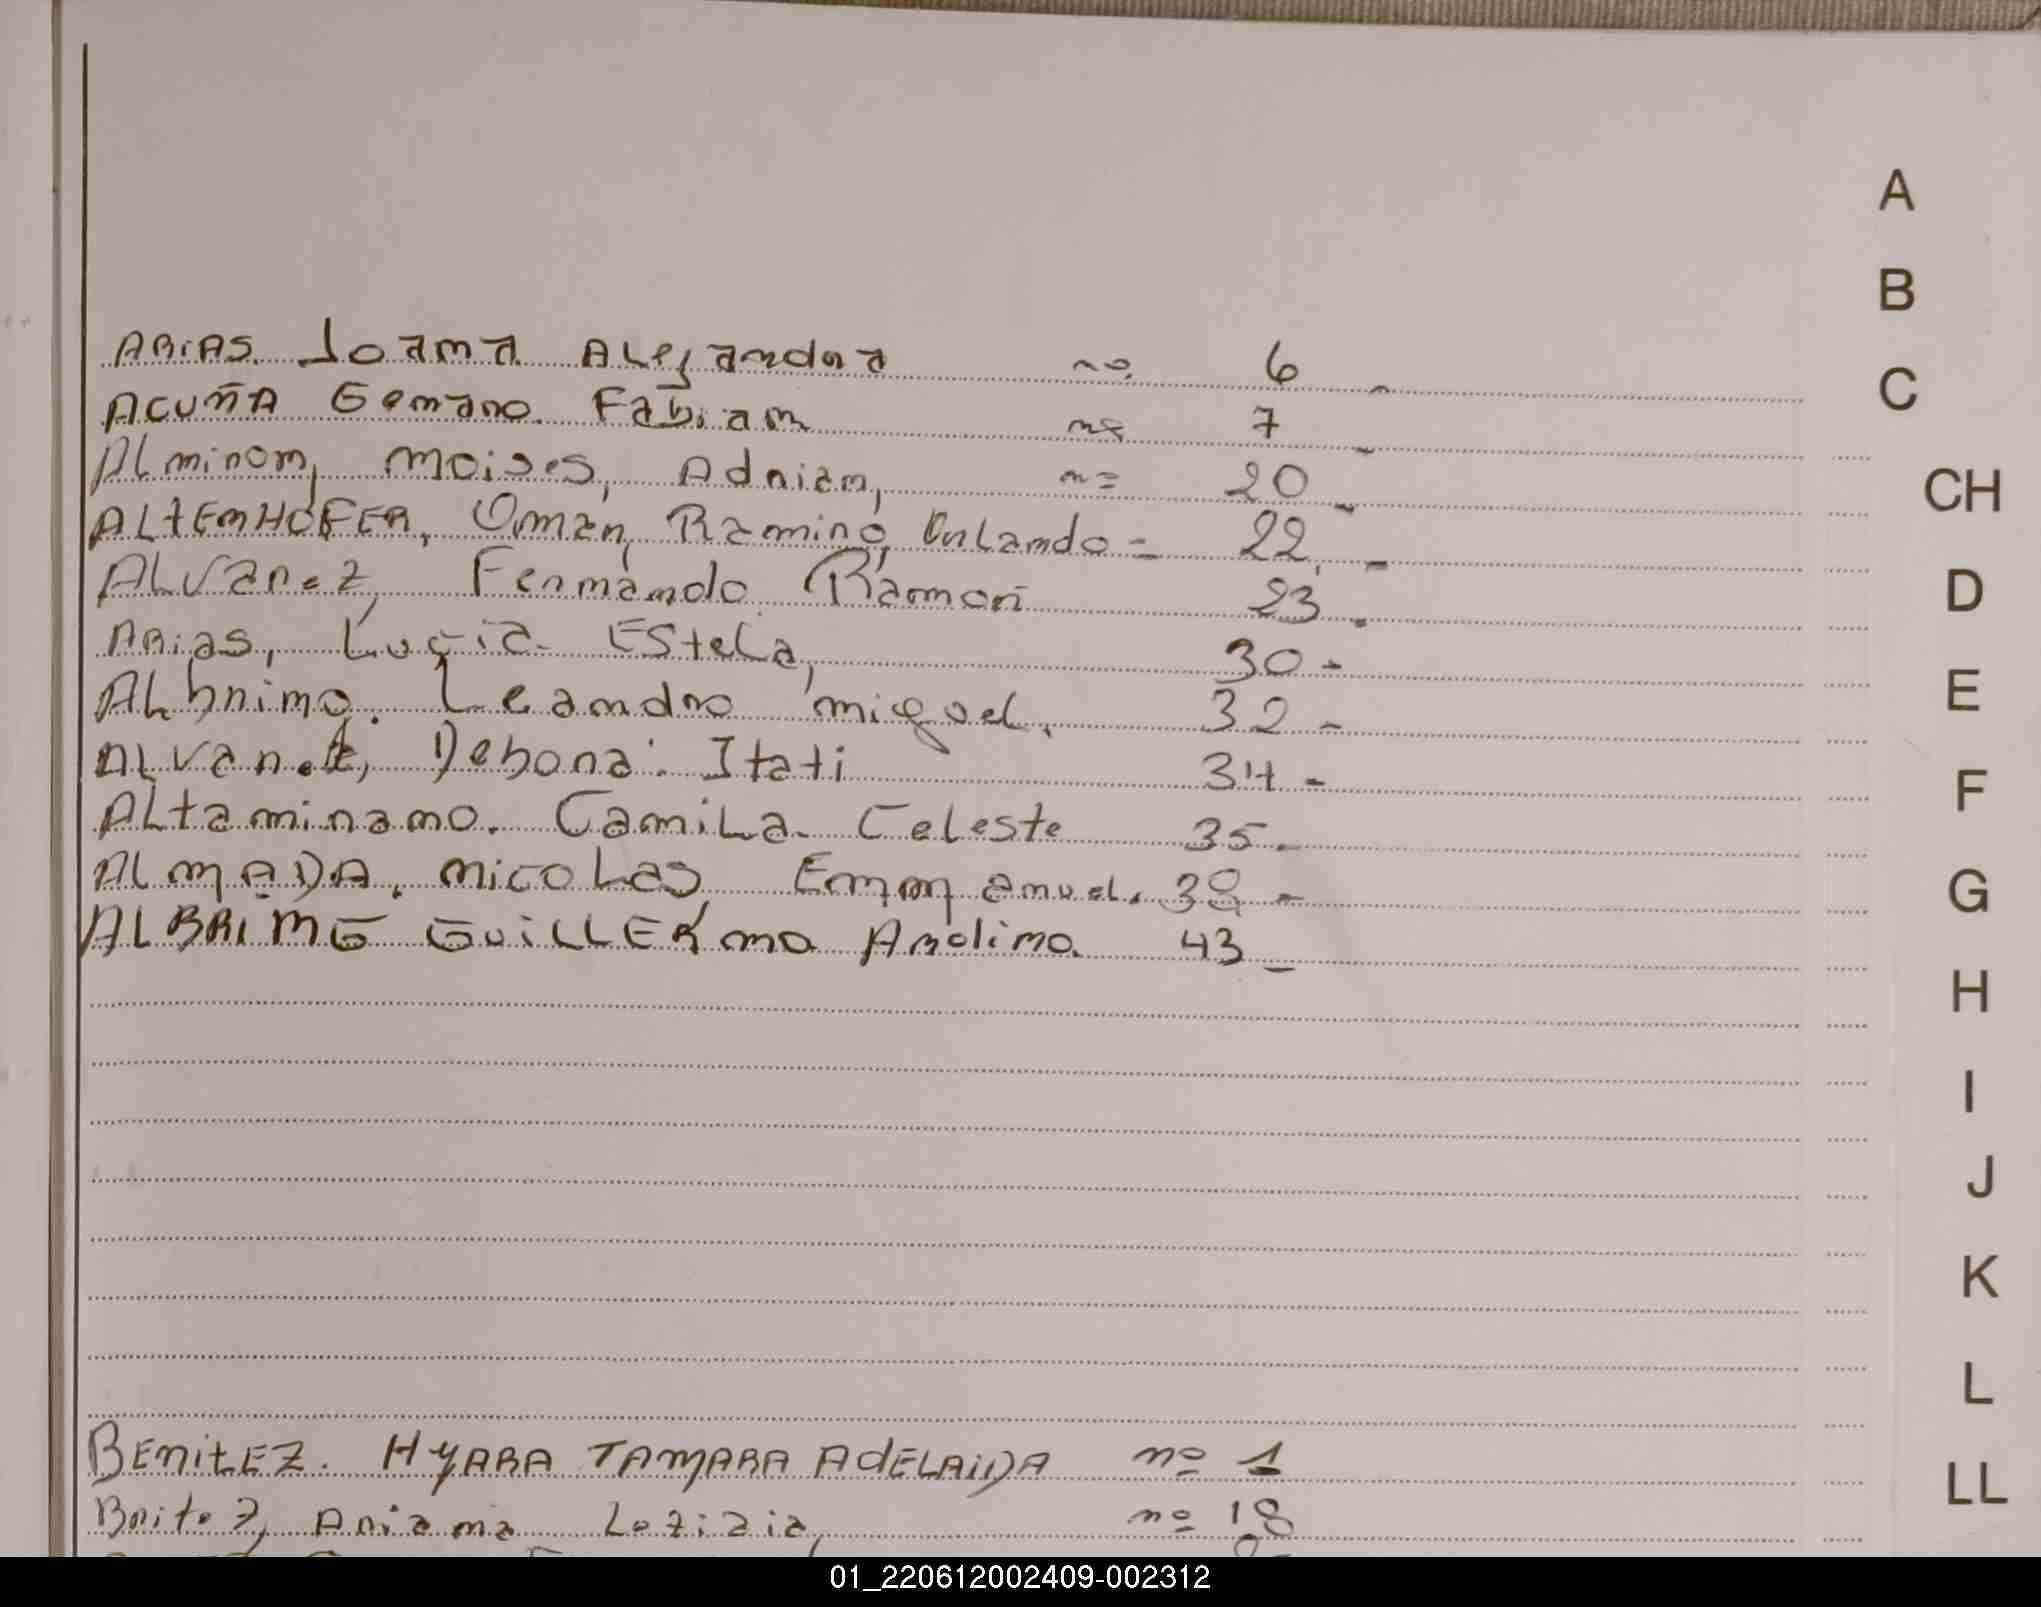 ARIAS. Joana Alejandra nº 6 -
ACUÑA Genaro. Fabian nº 7 -
Alminon, Moises, Adrian, n= 20 -
ALtENHOFER, Oman, Ramiro, Orlando = 22. -
ALvarez, Fernando Ramon 23 -
ARias, Lucia Estela, 30 -
ALbrimo. Leandro miguel. 32 -
ALvarez, Debora. Itati 34 -
ALtaminano. Camila Celeste 35 -
ALmADA. nicoLas Emmanuel. 38 -
ALBRIMO GuiLLERmo Anolino. 43 -
BEnitEZ. HYARA TAMARA AdELAiDA nº 1
Britez, Ariana Letizia, nº 18
A
B
C
CH
D
E
F
G
H
I
J
K
L
LL
01_220612002409-002312